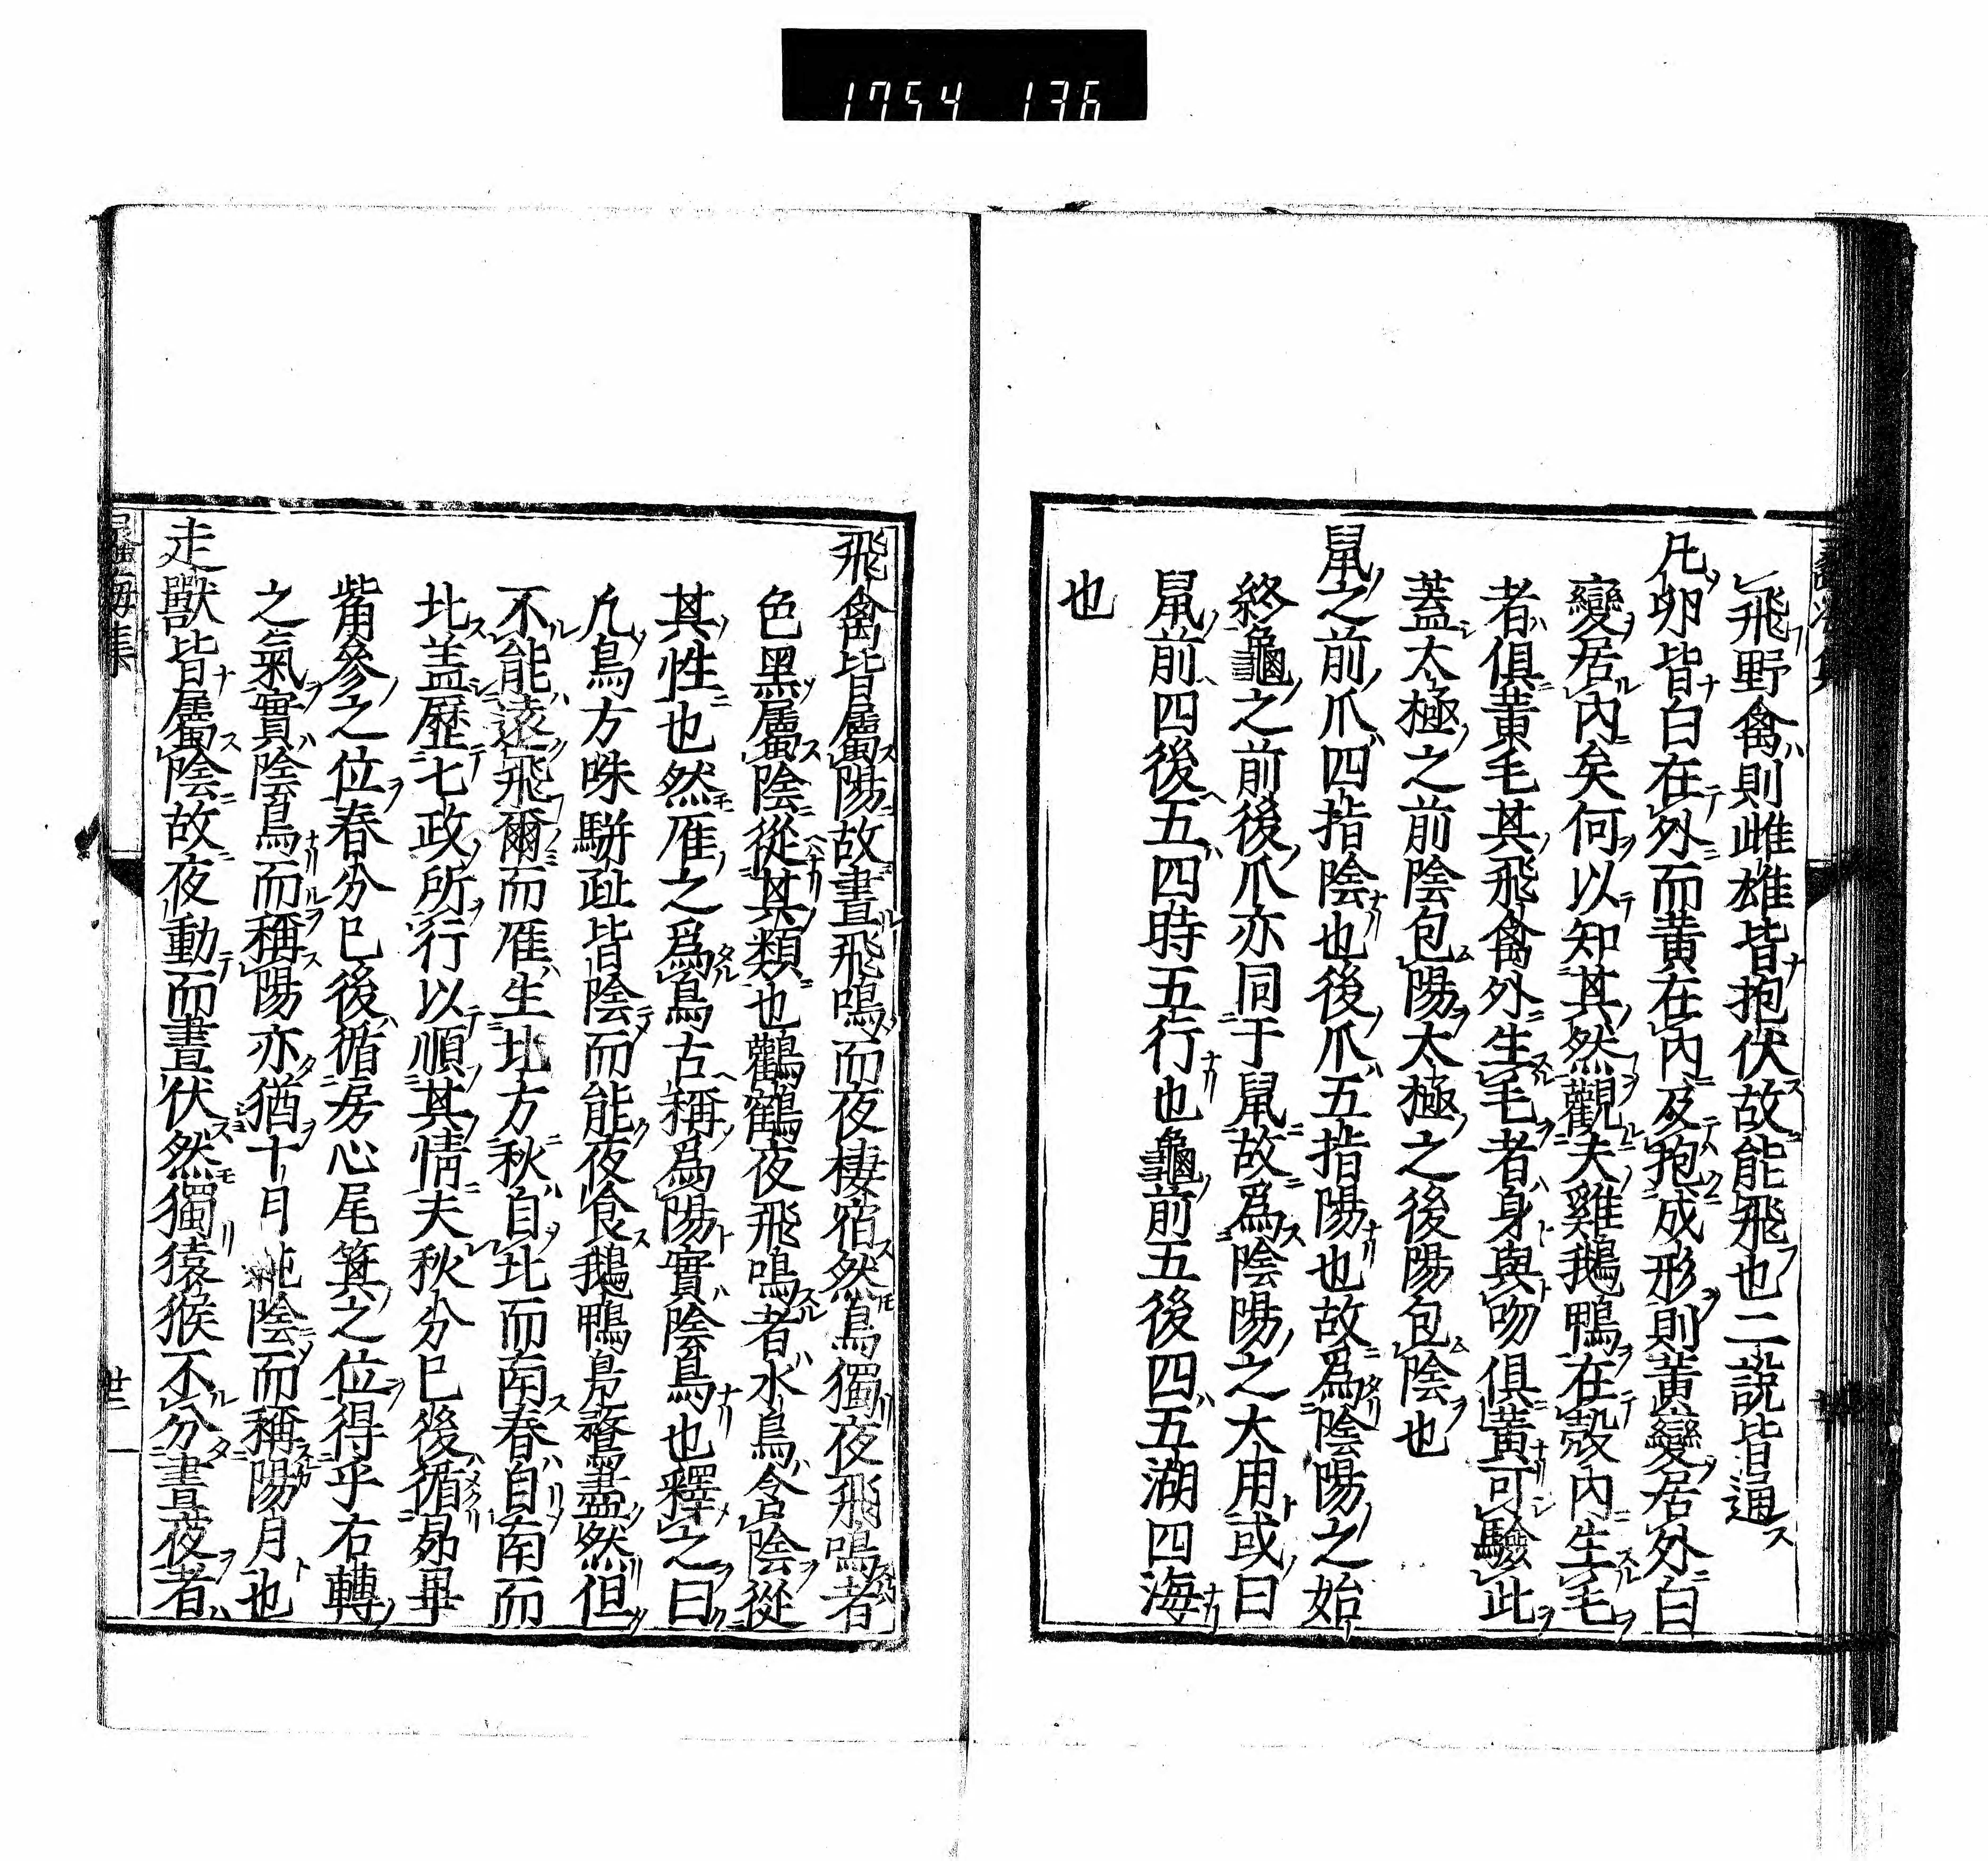 1754 136
飛野禽則雌雄皆抱伏故能飛也二說皆通
凡卵皆白在外而黃在內及抱成形則黃變居外白
變居內矣何以知其然觀夫雞鵝鴨在殼內生毛
者俱黃毛其飛禽外生毛者身與吻俱黃可驗此
蓋太極之前陰包陽太極之後陽包陰也
鼠之前爪四指陰也後爪五指陽也故爲陰陽之始
終龜之前後爪亦同于鼠故爲陰陽之大用或曰
鼠前四後五四時五行也龜前五後四五湖四海
也
飛禽皆屬陽故晝飛鳴而夜棲宿然烏獨夜飛鳴者
色黑屬陰從其類也鸛鶴夜飛鳴者水鳥含陰從
其性也然雁之爲鳥古稱爲陽實陰鳥也釋之曰
凡鳥方咮駢趾皆陰而能夜食鵝鴨鳧鶩盡然但
不能遠飛爾而雁生北方秋自北而南春自南而
北蓋歷七政所行以順其情夫秋分已後循昴畢
觜參之位春分已後循房心尾箕之位得乎右轉
之氣實陰鳥而稱陽亦猶十月純陰而稱陽月也
走獸皆屬陰故夜動而晝伏然獨猿猴不分晝夜者
海集